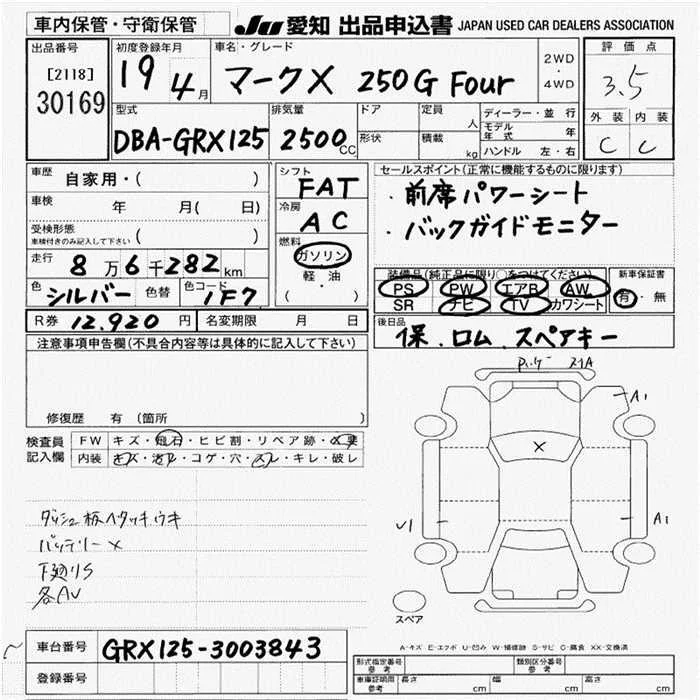 車内保管・守衛保管
JU 愛知 出品申込書 JAPAN USED CAR DEALERS ASSOCIATION
出品番号
[2118]
30169
初度登録年月
19 4月
車名・グレード
マークX 250G Four
2WD
・
4WD
評価点
3.5
外装 内装
C C
型式
DBA-GRX125
排気量
2500cc
ドア
形状
定員
人
積載
kg
ディーラー・並行
モデル年式 年
ハンドル 左・右
車歴 自家用・( )
車検 年 月(日)
受検形態
車検付きのみ記入して下さい ( )
走行 8万6千282km
色 シルバー 色替 色コード 1F7
R券 12,920円 名変期限 月 日
シフト
FAT
冷房
AC
燃料
ガソリン
・
軽・油
( )
セールスポイント(正常に機能するものに限ります)
・前席パワーシート
・バックガイドモニター
装備品(純正品に限り○をつけてください)
PS PW エアB AW
SR ナビ TV カワシート
新車保証書
有・無
後日品
保、ロム、スペアキー
注意事項申告欄(不具合内容等は具体的に記入して下さい)
修復歴 有(箇所 )
検査員
記入欄
FW キズ・飛石・ヒビ割・リペア跡・
内装 キズ・ ・コゲ・穴・スレ・キレ・破レ
バッテリー×
下廻りS
各AU
X
A1
U1
A1
スペア
A-キズ E-エクボ U-凹み W-補修跡 S-サビ C-腐食 XX-交換済
車台番号 GRX125-3003843
登録番号
形式指定番号
参考
類別区分番号
参考
車庫証明用
参考
長さ cm 幅 cm 高さ cm